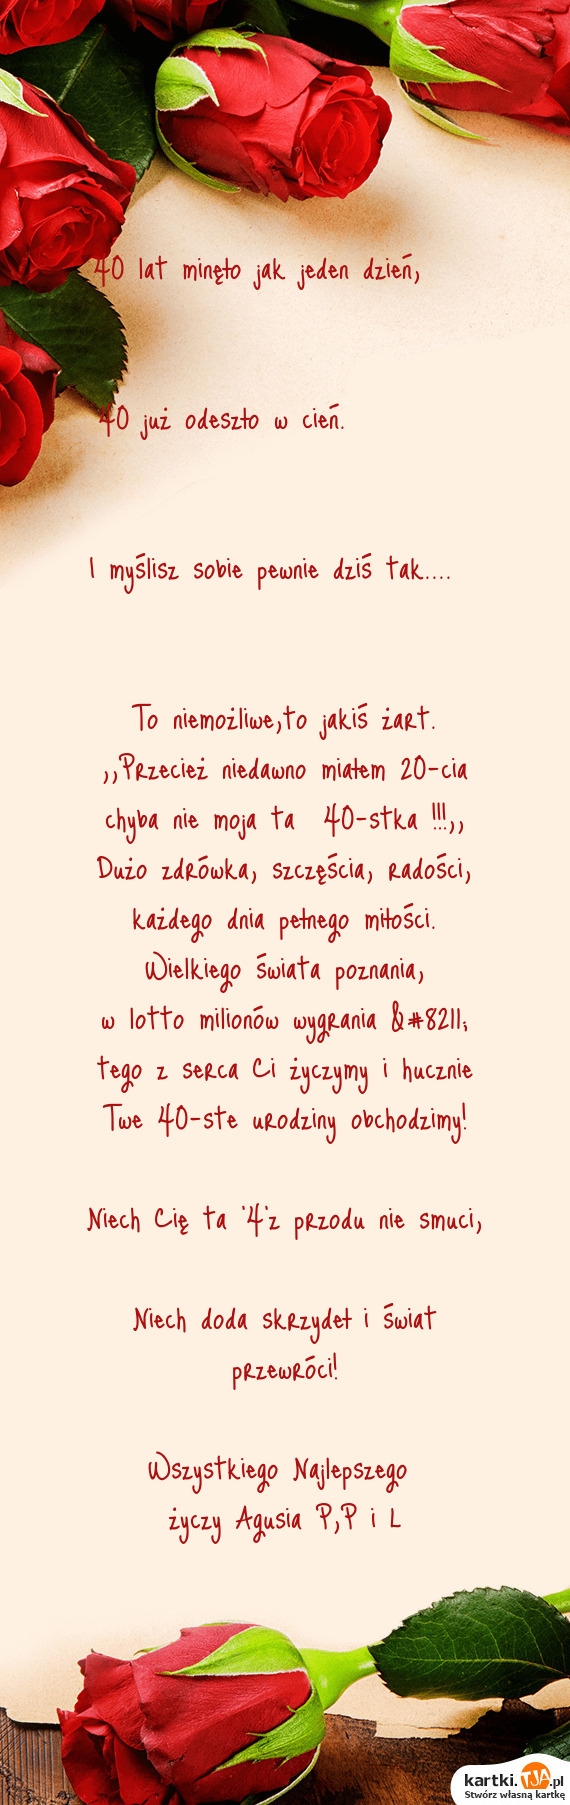 40 lat minęło jak jeden dzień,
40 już odeszło w cień.
I myślisz sobie pewnie dziś tak....
To niemożliwe,to jakiś żart.
,,Przecież niedawno miałem 20-cia
chyba nie moja ta 40-stka !!!,,
Dużo zdrówka, szczęścia, radości,
każdego dnia pełnego miłości.
Wielkiego świata poznania,
w lotto milionów wygrania &#8211;
tego z serca Ci życzymy i hucznie
Twe 40-ste urodziny obchodzimy!
Niech Cię ta '4'z przodu nie smuci,
Niech doda skrzydeł i świat
przewróci!
Wszystkiego Najlepszego
życzy Agusia P,P i L
kartki.TJA.pl
Stwórz własną kartkę